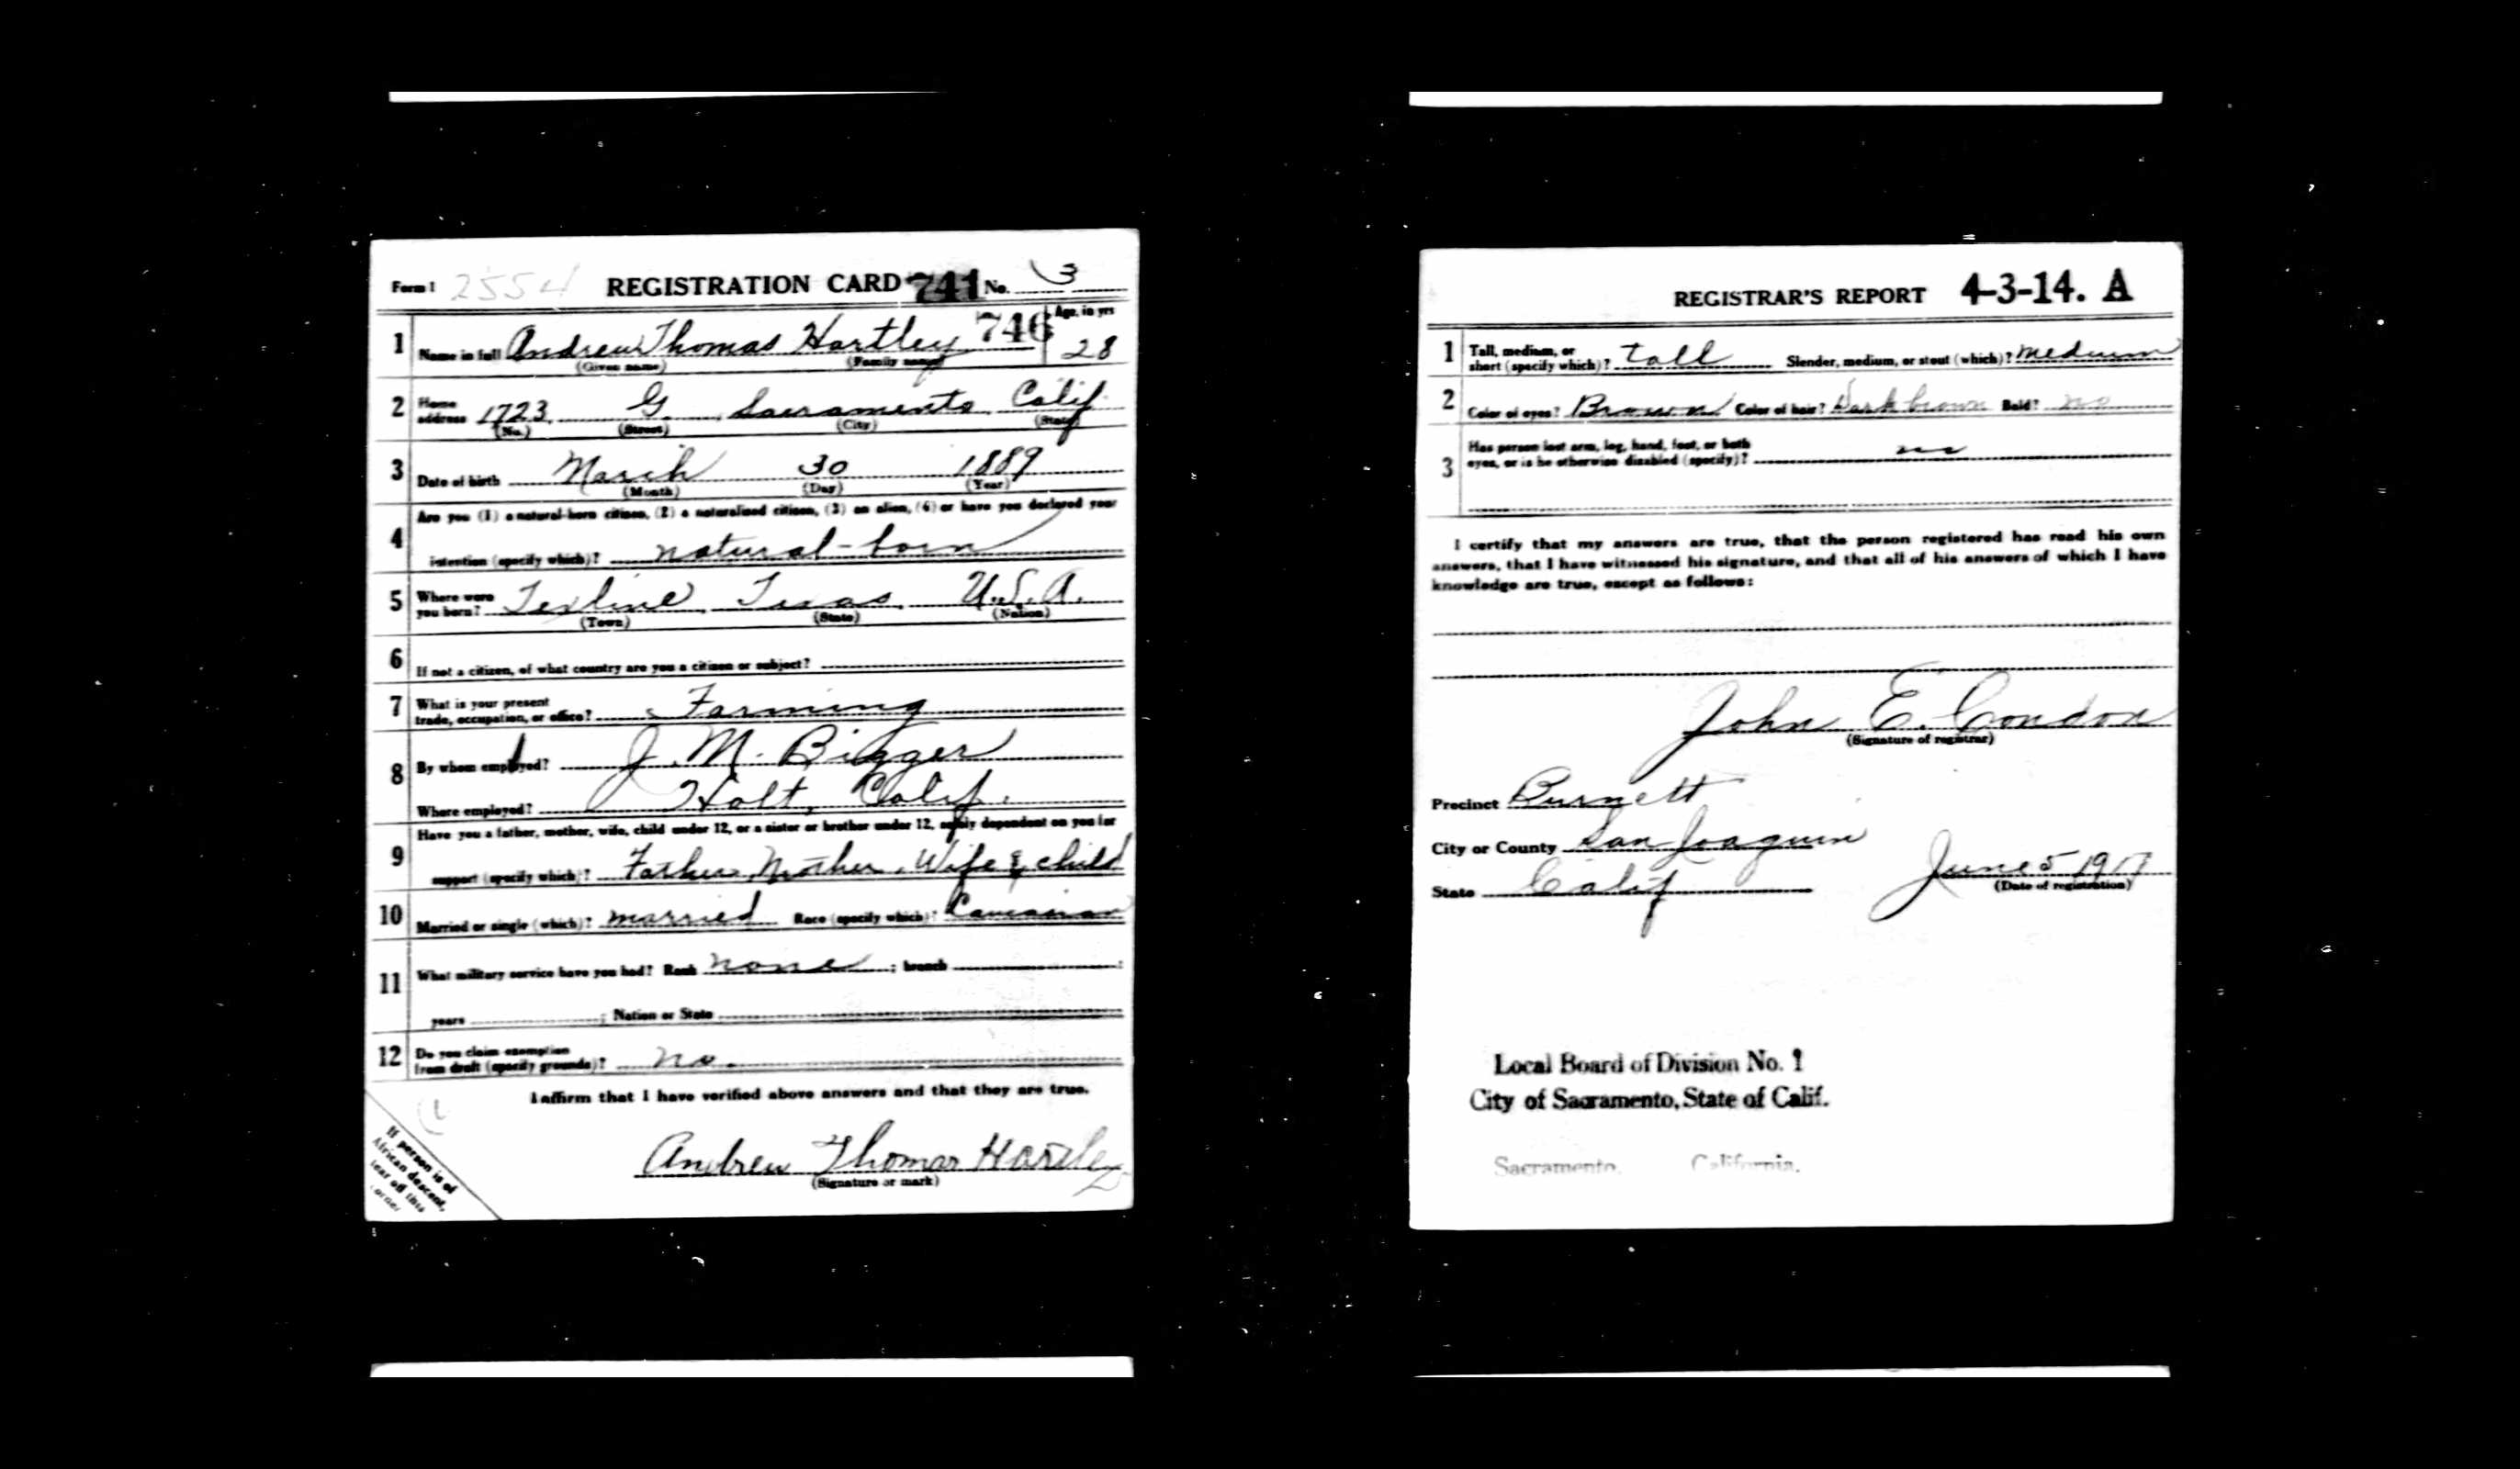 Form 1 2554 REGISTRATION CARD 741 No. 3
1 Name in full Andrew Thomas Hartley 746 Age, in yrs 28
(Given name) (Family name)
2 Home address 1723 G Sacramento Calif.
(No.) (Street) (City) (State)
3 Date of birth March 30 1889
(Month) (Day) (Year)
4 Are you (1) a natural-born citizen, (2) a naturalized citizen, (3) an alien, (4) or have you declared your
intention (specify which)? natural-born
5 Where were you born? Texline, Texas, U.S.A.
(Town) (State) (Nation)
6 If not a citizen, of what country are you a citizen or subject?
7 What is your present trade, occupation, or office? Farming
8 By whom employed? J. M. Bigger
Where employed? Holt, Calif.
9 Have you a father, mother, wife, child under 12, or a sister or brother under 12, solely dependent on you for
support (specify which)? Father, Mother, Wife & child
10 Married or single (which)? married Race (specify which)? Caucasian
11 What military service have you had? Rank none ; branch ;
years ; Nation or State
12 Do you claim exemption from draft (specify grounds)? no.
I affirm that I have verified above answers and that they are true.
Andrew Thomas Hartley
(Signature or mark)
If person is of
African descent,
tear off this
corner
REGISTRAR'S REPORT 4-3-14. A
1 Tall, medium, or short (specify which)? tall Slender, medium, or stout (which)? medium
2 Color of eyes? Brown Color of hair? Dark brown Bald? no
3 Has person lost arm, leg, hand, foot, or both
eyes, or is he otherwise disabled (specify)? no
I certify that my answers are true, that the person registered has read his own
answers, that I have witnessed his signature, and that all of his answers of which I have
knowledge are true, except as follows:
John E. Condon
(Signature of registrar)
Precinct Burnett
City or County San Joaquin
State Calif June 5 1917
(Date of registration)
Local Board of Division No. 1
City of Sacramento, State of Calif.
Sacramento, California.